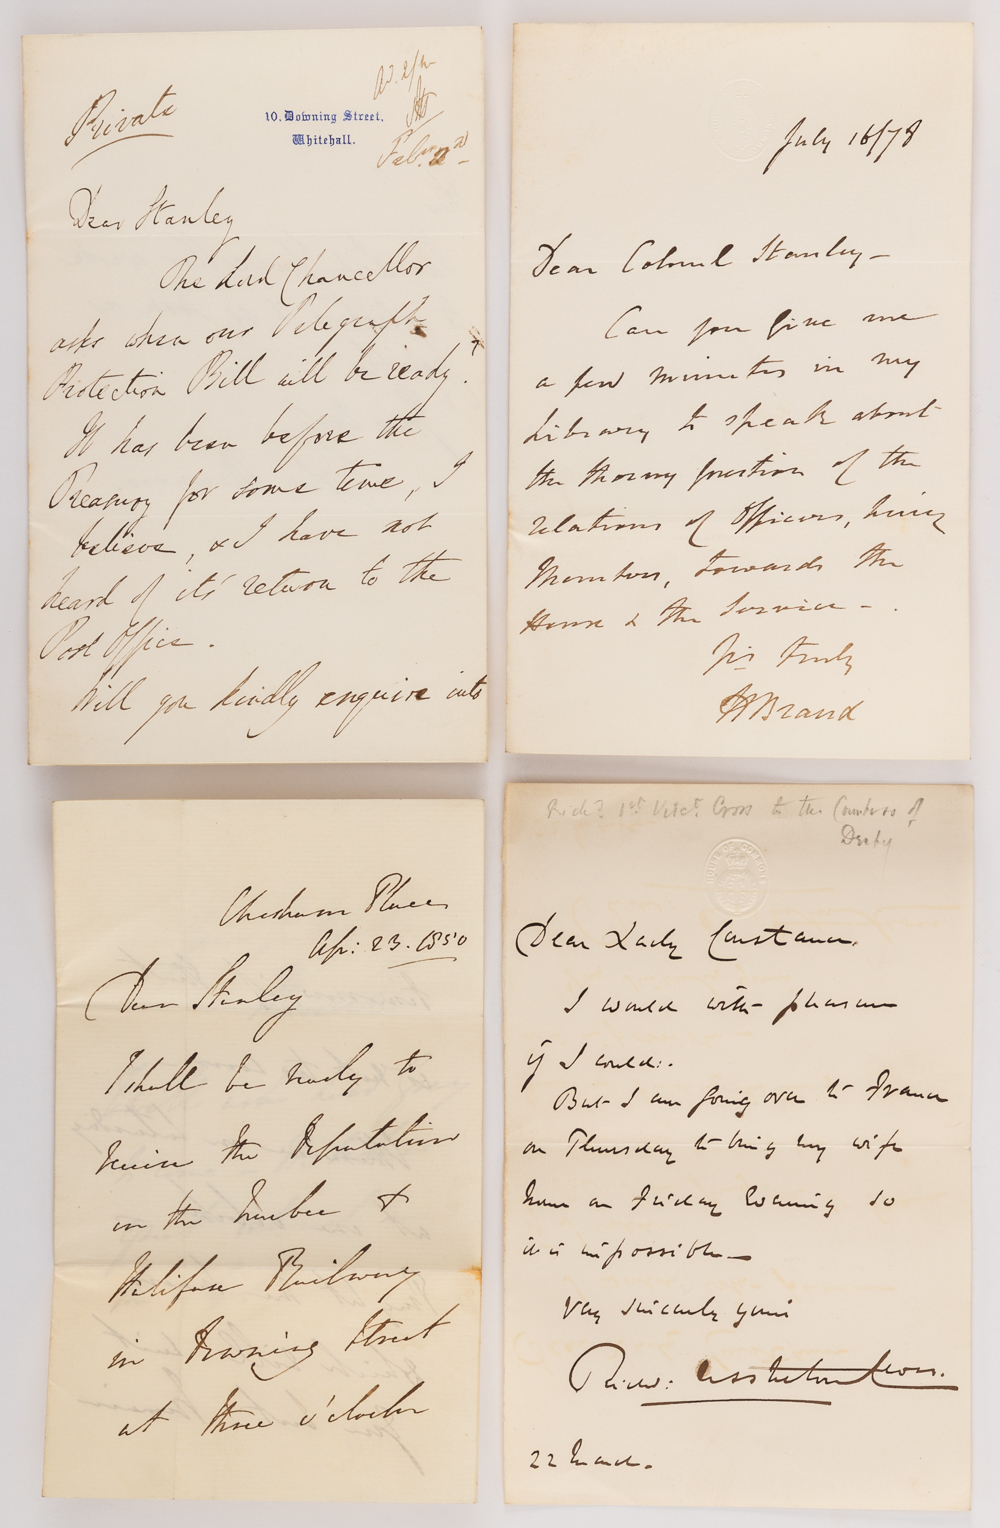 Private
10, Downing Street,
Whitehall.
Feb:
Dear Stanley
The Lord Chancellor
asks when our Telegraph
Protection Bill will be ready.
It has been before the
Treasury for some time, I
believe, & I have not
heard of it's return to the
Post Office.
Will you kindly enquire into
July 16/78
Dear Colonel Stanley–
Can you give me
a few minutes in my
Library to speak about
the thorny question of the
relations of Officers, being
Members, towards the
House & the Service –.
Yrs truly
HBrand
Chesham Place
Ap: 23. 1850
Dear Stanley
I shall be ready to
receive the Deputation
on the Quebec &
Halifax Railway
in Downing Street
at three o'clock
Richd 1st Visct. Cross to the Countess of
Derby
HOUSE OF COMMONS
Dear Lady Constance.
I would with pleasure
if I could:.
But I am going over to France
on Thursday to bring my wife
home on Friday Evening so
it is impossible–
Very sincerely yours
Richd: Assheton Cross.
22 March.